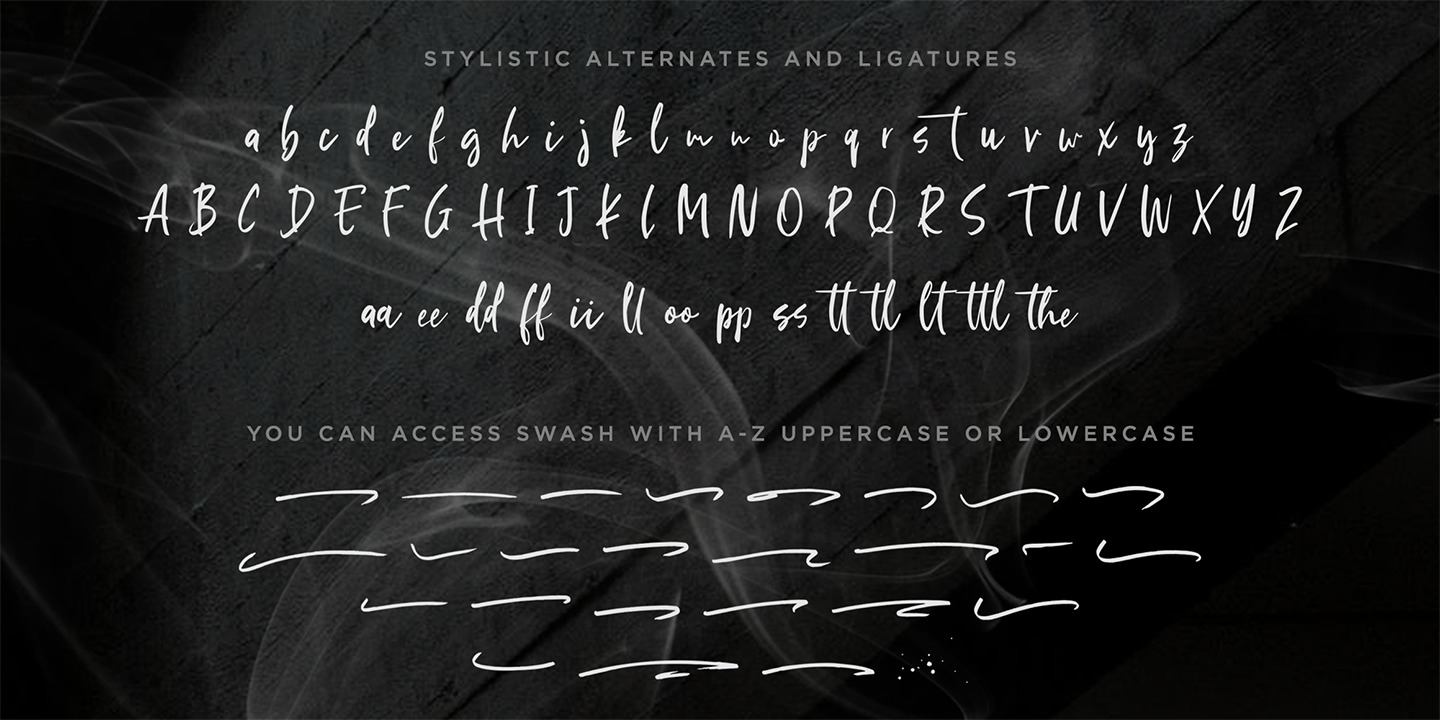 STYLISTIC ALTERNATES AND LIGATURES
a b c d e f g h i j k l m n o p q r s t u v w x y z
A B C D E F G H I J K L M N O P Q R S T U V W X Y Z
aa ee dd ff ii ll oo pp ss tt tl lt ttl the
YOU CAN ACCESS SWASH WITH A-Z UPPERCASE OR LOWERCASE